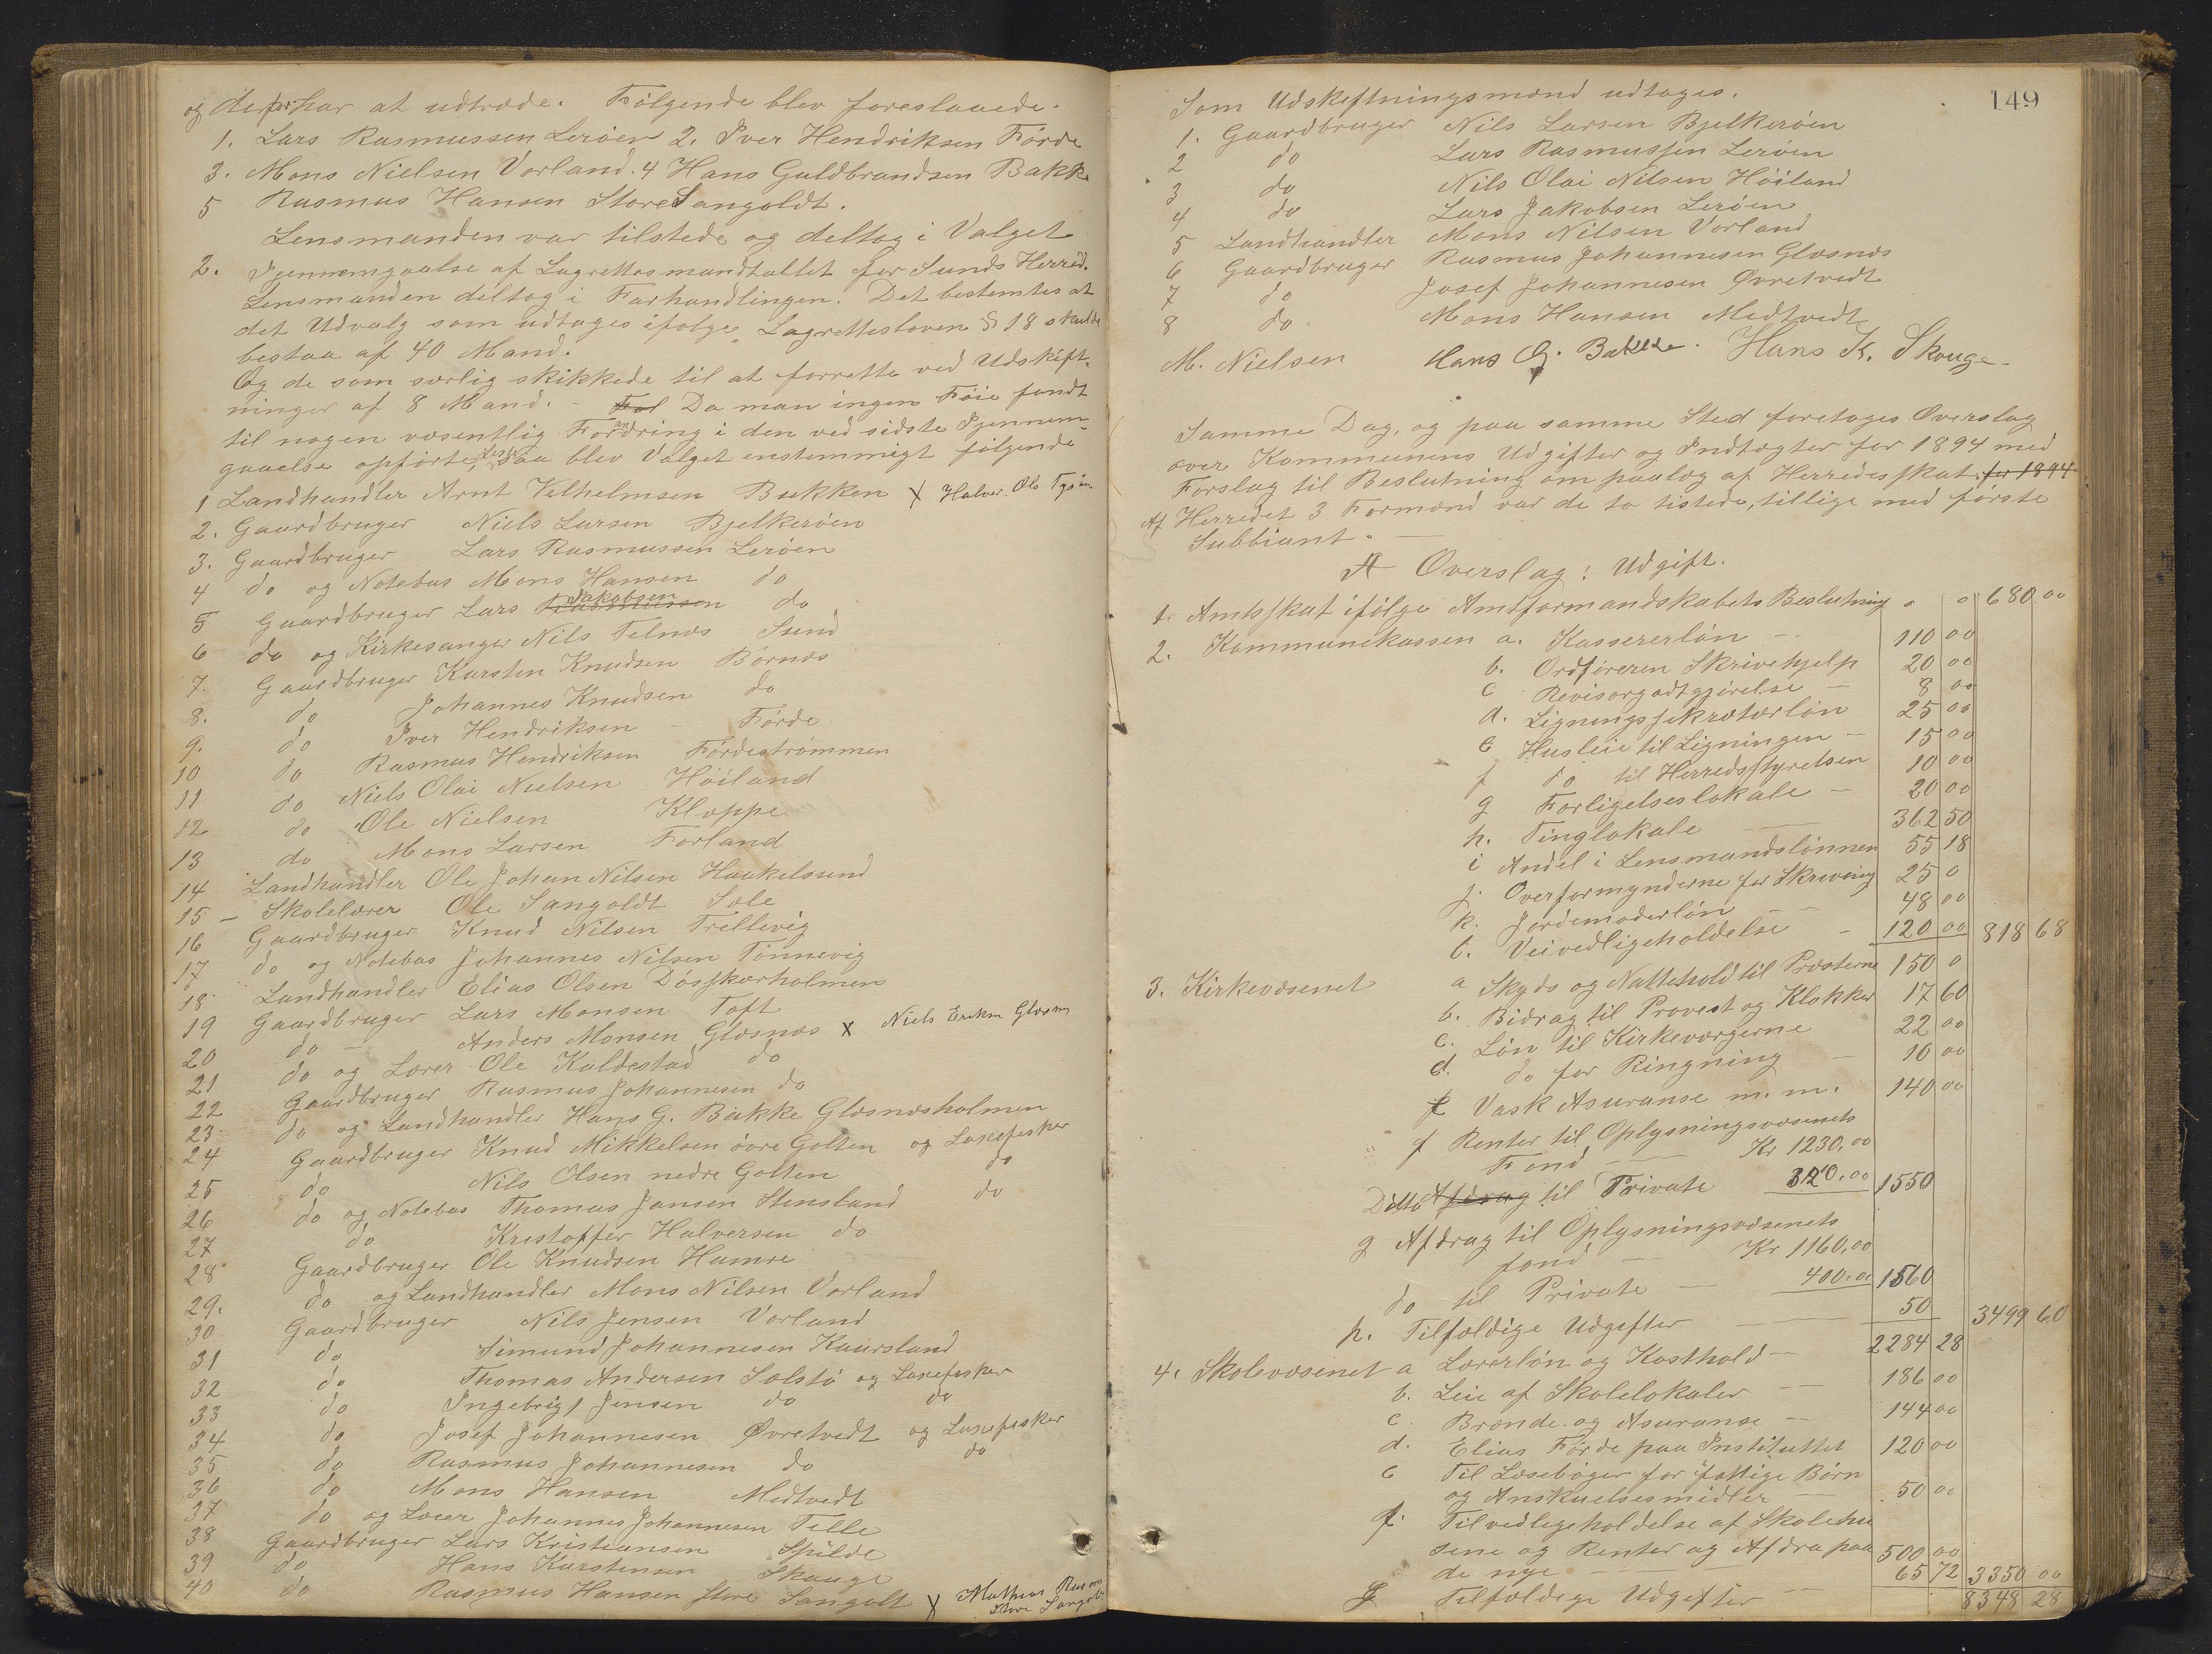 og derfor har at udtræde. Følgende blev foreslaaede.
1. Lars Rasmussen Lerøen 2. Iver Hendriksen Førde
3. Mons Nielsen Vorland. 4 Hans Guldbrandsen Bakke
5 Rasmus Hansen Store Sangoldt.
Lensmanden var tilstede og deltog i Valget
2. Gjennemgaalse af Lagrettesmandtallet for Sunds Herred.
Lensmanden deltog i Forhandlingen. Det bestemtes at
det Udvalg som udtages ifølge Lagretteloven § 18 skulde
bestaa af 40 Mand.
Og de som særlig skikkede til at forrette ved Udskift-
ninger af 8 Mand. - Fol Da man ingen Føie fandt
til nogen væsentlig Forandring i den ved sidste Gjennem-
gaaelse opførte, saa blev Valget enstemmigt følgende
1 Landhandler Arnt Velhelmsen Bukken X Halvor Ols Tysøen
2. Gaardbruger Niels Larsen Bjelkerøen
3. Gaardbruger Lars Rasmussen Lerøen
4 do og Notebas Mons Hansen do
5 Gaardbruger Lars Rasmussen Jakobsen do
6 do og Kirkesanger Nils Telnæs Sund
7. Gaardbruger Karsten Knudsen Børnæs
8. do Johannes Knudsen do
9. do Iver Hendriksen Førde
10 do Rasmus Hendriksen Førdestrømmen
11 do Niels Olai Nielsen Høiland
12 do Ole Nielsen Kloppe
13 do Mons Larsen Forland
14 Landhandler Ole Johan Nilsen Haakelsund
15 - Skolelærer Ole Sangoldt Sæle
16 Gaardbruger Knud Nilsen Trellevig
17 do og Notebas Johannes Nilsen Tønnevig
18 Landhandler Elias Olsen Døsskærholmen
19 Gaardbruger Lars Monsen Toft
20 do Anders Monsen Glæsnæs X Niels Eriksn Glæsnæs
21 do og Lærer Ole Kaldestad do
22 Gaardbruger Rasmus Johannesen do
23 do og Landhandler Hans G. Bakke Glæsnæsholmen
24 Gaardbruger Knud Mikkelsen øvre Golten og Laxefisker
25 do Nils Olsen nedre Golten do
26 do og Notebas Thomas Jansen Stensland do
27 do Kristoffer Halversen do
28 Gaardbruger Ole Knudsen Hamre
29. do og Landhandler Mons Nilsen Vorland
30 Gaardbruger Nils Jensen Vorland
31 do Simund Johannesen Kaursland
32 do Thomas Andersen Sælstø og Laxefisker
33 do Ingebrigt Jensen do do
34 do Josef Johannesen Øvretvedt og Laxefisker
35 do Rasmus Johannesen do do
36 do Mons Hansen Medtvedt
37 do og Lærer Johannes Johannesen Telle
38 Gaardbruger Lars Kristiansen Spilde
39 do Hans Karstensen Skauge
40 do Rasmus Hansen store Sangolt X Mathias Rasm
Store Sangolt
149
Som Udskiftningsmænd udtages.
1. Gaardbruger Nils Larsen Bjelkerøen
2 do Lars Rasmussen Lerøen
3 do Nils Olai Nilsen Høiland
4 do Lars Jakobsen Lerøen
5 Landhandler Mons Nilsen Vorland
6 Gaardbruger Rasmus Johannesen Glæsnæs
7 do Josef Johannesen Øvretvedt
8 do Mons Hansen Medtvedt
M. Nielsen Hans G. Bakke. Hans K. Skouge
Samme Dag, og paa samme Sted foretages Overslag
over Kommunens Udgifter og Indtægter for 1894 med
Forslag til Beslutning om paalæg af Herredsskat for 1894
Af Herredet 3 Formænd var de to tistede, tillige med første
Subbiant.
A Overslag: Udgift.
1. Amtsskat ifølge Amtformandskabets Beslutning " " 680 00
2. Kommunekassen a. Kassererløn 110 00
b. Ordføreren Skrivehjelp 20 00
c Revisorgodtgjørelse 8 00
d. Ligningssekretærløn 25 00
e Husleie til Ligningen 15 00
f do til Herredsstyrelsen 10 00
g Forligelseslokale 20 00
h. Tinglokale 362 50
i Andel i Lensmandslønnen 55 18
j. Overformynderne for Skrivning 25 0
k. Jordemoderløn 48 00
l. Veivedligeholdelse 120 00 818 68
3. Kirkevæsenet a Skyds og Nattehold til Præsterne 150 0
b. Bidrag til Provest og Klokker 17 60
c. Løn til Kirkeværgerne 22 00
d. do for Ringning 10 00
e Vask Asuranse m. m. 140 00
f Renter til Oplysningsvæsenets
Fond Kr 1230,00
Ditto Afdrag til Private 320.00 1550
g Afdrag til Oplysningsvæsenets
fond Kr 1160,00
do til Private 400.00 1560
h. Tilfældige Udgifter 50 3499 60
4. Skolevæsenet a Lærerløn og Kosthold 2284 28
b. Leie af Skolelokaler 186 00
c. Brænde og Asuranse 144 00
d. Elias Førde paa Instituttet 120 00
e Til Læsebøger for fattige Børn
og Anskuelsesmidler 50 00
f. Til vedligeholdelse af Skolehu
sene og Renter og Afdra paa
de nye 500 00
g Tilfældige Udgifter 65 72 3350 00
8348 28